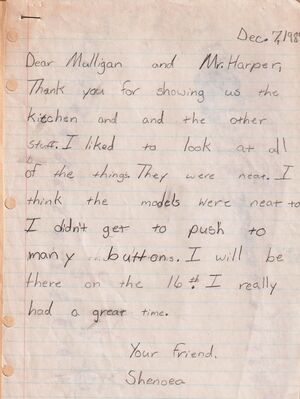 Dec. 7, 198
Dear Mulligan and Mr. Harper,
Thank you for showing us the
kitchen and and the other
stuff. I liked to look at all
of the things. They were neat. I
think the models were neat to
I didn't get to push to
many buttons. I will be
there on the 16th. I really
had a great time.
Your friend.
Shenoea